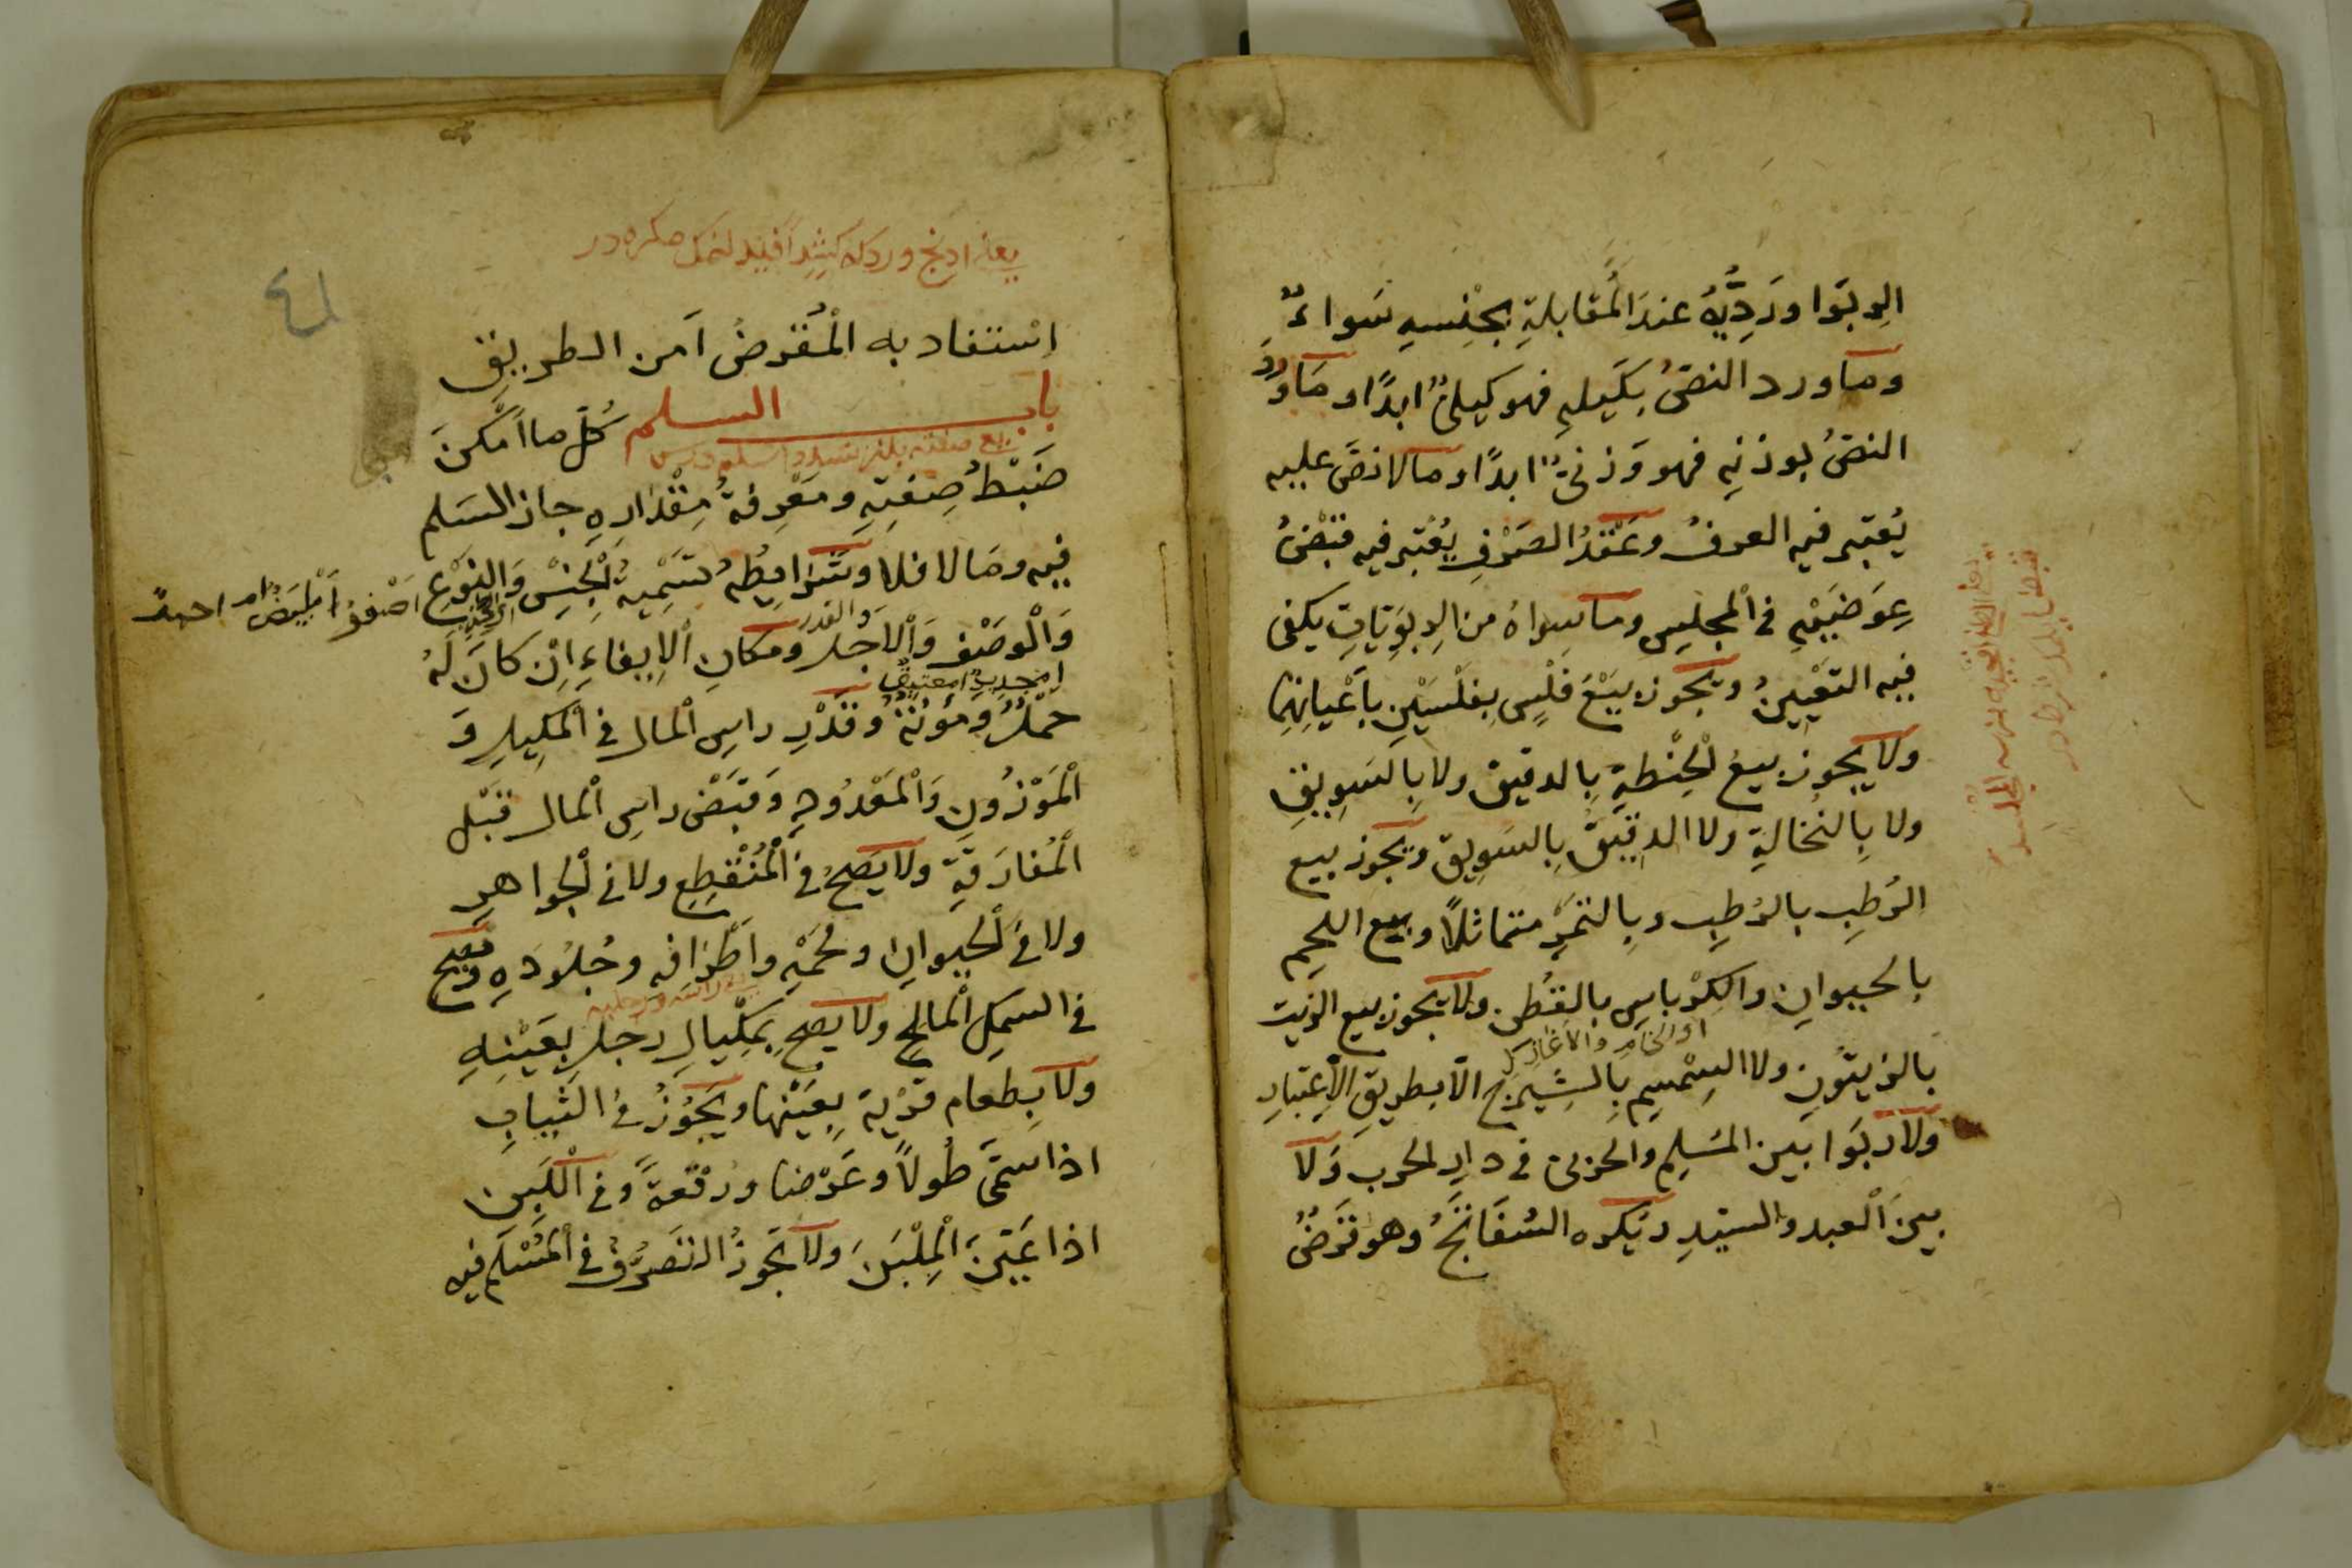 الربوا ورديّه عندَ المُقابلةِ بجنْسِهِ سَواءٌ
وما ورد النصُّ بكَيلهِ فهو كيليٌّ ابدًا وما ورَدَ
النصُّ بوزنِهِ فهو وَزنيٌّ ابدًا وما لا نصَّ عليه
يُعتبر فيه العرفُ وعَقْدُ الصَرْفِ يُعْتبر فيه قَبْضُ
عِوَضَيْهِ في المجلِسِ وما سِواهُ من الرِبَوِيّاتِ يكفى
فيه التَعْيِينُ ويجوز بيعَ فَلْسٍ بِفلْسَيْنِ بِاَعْيانِهِمَا
ولا يجوز بيعُ الحِنْطةِ بِالدقيق ولا بِالسَوِيقِ
ولا بِالنُخالةِ ولا الدقيقَ بِالسَوِيق ويجوز بيع
الرُطبِ بالرُطبِ وبِالتمْرِ متماثلًا وبيع اللحمِ
بالحيوانِ والكِرْباسِ بالقُطنِ ولا يجوز بيع الزيت
بالزيتُونِ ولا السِمْسِمِ بِالشَيْرَجِ الّا بطريقِ الْاِعْتِبارِ
ولا ربَوا بَين المُسَلِمِ والحربىّ فى دارِ الحرب وَلا
بينَ اَلْعبد والسيّدِ ويكره السُفَاتَجُ وهو قَرْضٌ
٤١
اسْتفاد به الْمُقرِضُ اَمن الطريقِ
باب السلم كُلّ ما اَمْكنَ
ضَبْطُ صِفتِهِ ومَعْرِفةُ مِقْدارِهِ جاز السَلم
فيه ومَا لا فلا وشَرايطُهُ تَسْمِيةُ الجنْسِ وَالنَوْعِ
وَالْوصْفِ وَالْاَجلِ والقدر ومكانِ الْاِيفاءِ اِنْ كانَ لَهُ
حَمْلٌ وَمُؤنَةٌ وَقَدْرِ راسِ الْمال فى المكِيلِ وَ
الْمَوْزُونِ وَالْمَعْدُودِ وَقَبْض راسِ الْمال قَبْل
الْمُفارَقةِ ولا يَصحُّ فى الْمُنْقَطِعِ ولا فى الجواهرِ
ولا فى الحيوانِ ولحْمِهِ واَطْرافه وجُلُودِهِ ويصح
فى السمكِ الْمالحِ ولا يصح بمِكْيالِ رجلٍ بعَيْنِهِ
ولا بِطعام قَرْيةٍ بِعَيْنها ويَجُوزُ فى الثيابِ
اذا سَمّى طُولًا وعَرْضا ورُقْعةً وفى اللَبِنِ
اذا عَيّنَ الْمِلْبَنَ ولا يَجوزُ التَصرُّفُ فى الْمُسْلَمِ فيه